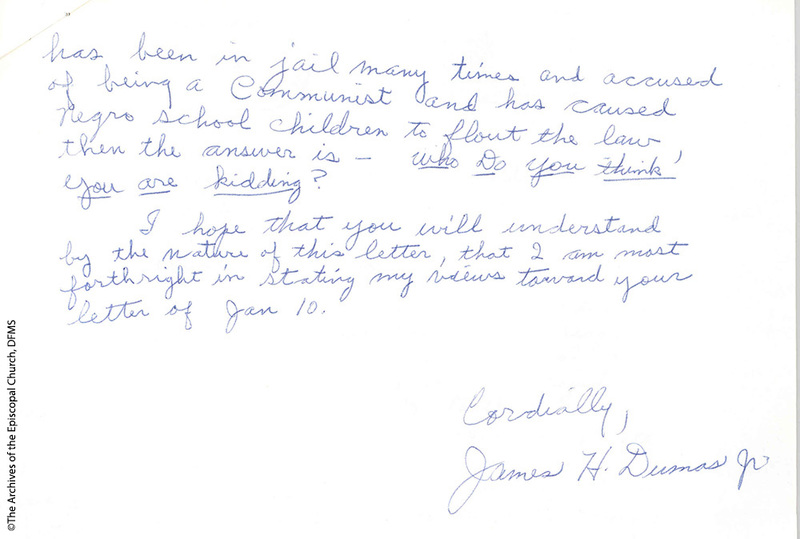 has been in jail many times and accused
of being a Communist and has caused
Negro school children to flout the law
then the answer is – Who Do You think
you are kidding?
I hope that you will understand
by the nature of this letter, that I am most
forthright in stating my views toward your
letter of Jan 10.
Cordially,
James H. Dumas Jr
©The Archives of the Episcopal Church, DFMS